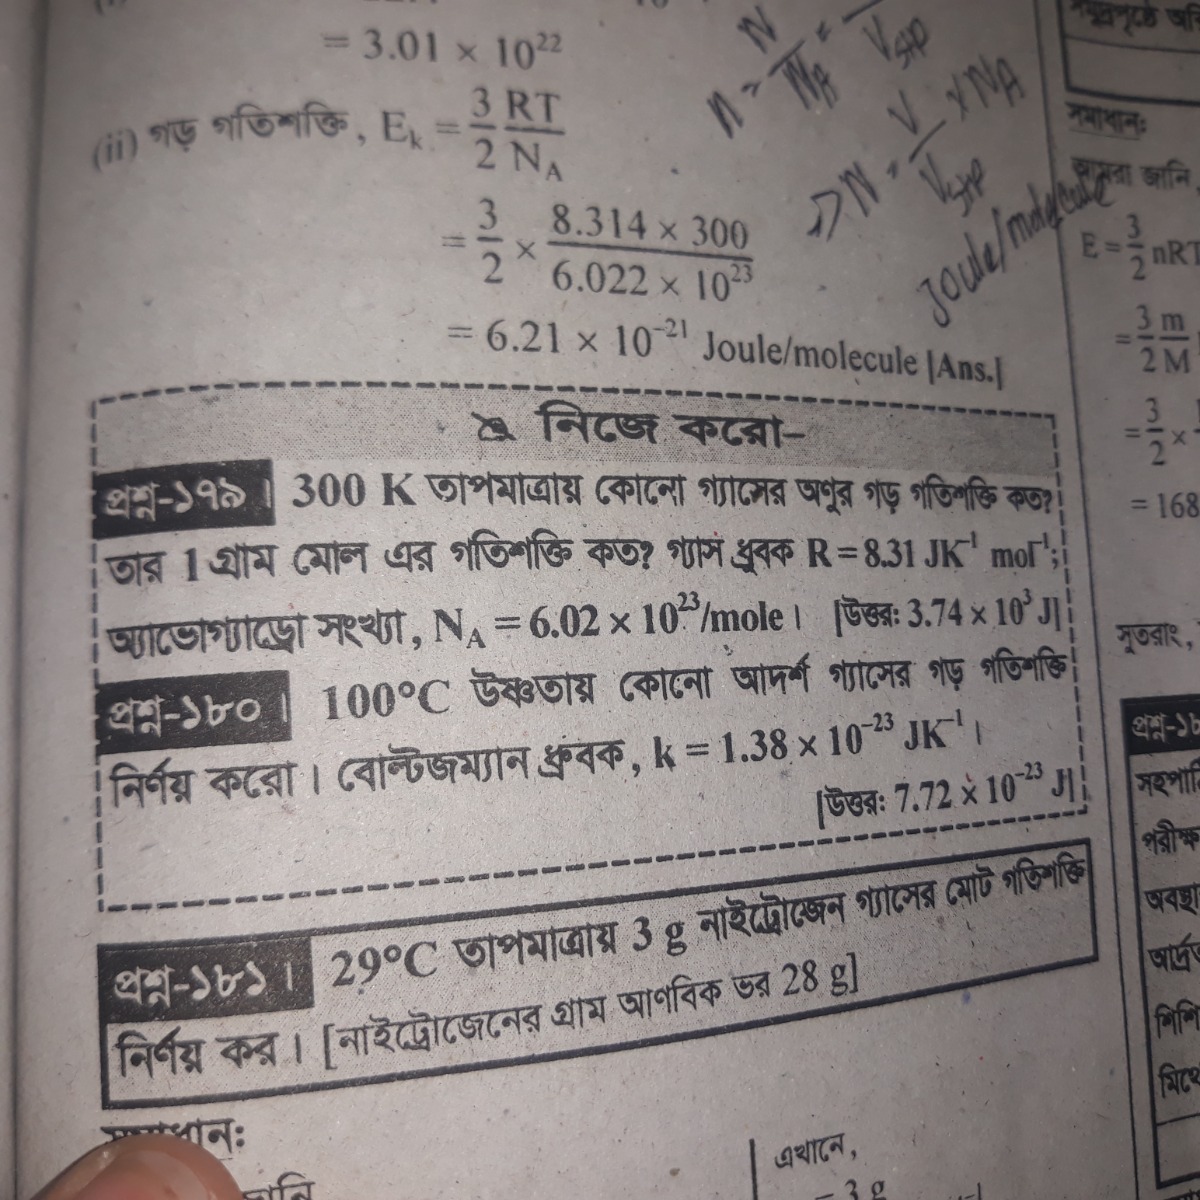 = 3.01 × 10²²
(ii) গড় গতিশক্তি, Eₖ = 3/2 RT/N_A
= 3/2 × 8.314 × 300 / 6.022 × 10²³
= 6.21 × 10⁻²¹ Joule/molecule [Ans.]
n = N/N_A = /V_STP
⇒ N = V/V_STP × N_A
Joule/molecule
নিজে করো-
প্রশ্ন-১৭৯। 300 K তাপমাত্রায় কোনো গ্যাসের অণুর গড় গতিশক্তি কত?
তার 1 গ্রাম মোল এর গতিশক্তি কত? গ্যাস ধ্রুবক R = 8.31 JK⁻¹ mol⁻¹;
অ্যাভোগ্যাড্রো সংখ্যা, N_A = 6.02 × 10²³/mole। [উত্তর: 3.74 × 10³ J]
প্রশ্ন-১৮০। 100°C উষ্ণতায় কোনো আদর্শ গ্যাসের গড় গতিশক্তি
নির্ণয় করো। বোল্টজম্যান ধ্রুবক, k = 1.38 × 10⁻²³ JK⁻¹।
[উত্তর: 7.72 × 10⁻²³ J]
প্রশ্ন-১৮১। 29°C তাপমাত্রায় 3 g নাইট্রোজেন গ্যাসের মোট গতিশক্তি
নির্ণয় কর। [নাইট্রোজেনের গ্রাম আণবিক ভর 28 g]
এখানে,
3 g
সমাধান:
আমরা জানি,
E = 3/2 nRT
= 3/2 m/M
= 3/2 ×
= 168
সুতরাং,